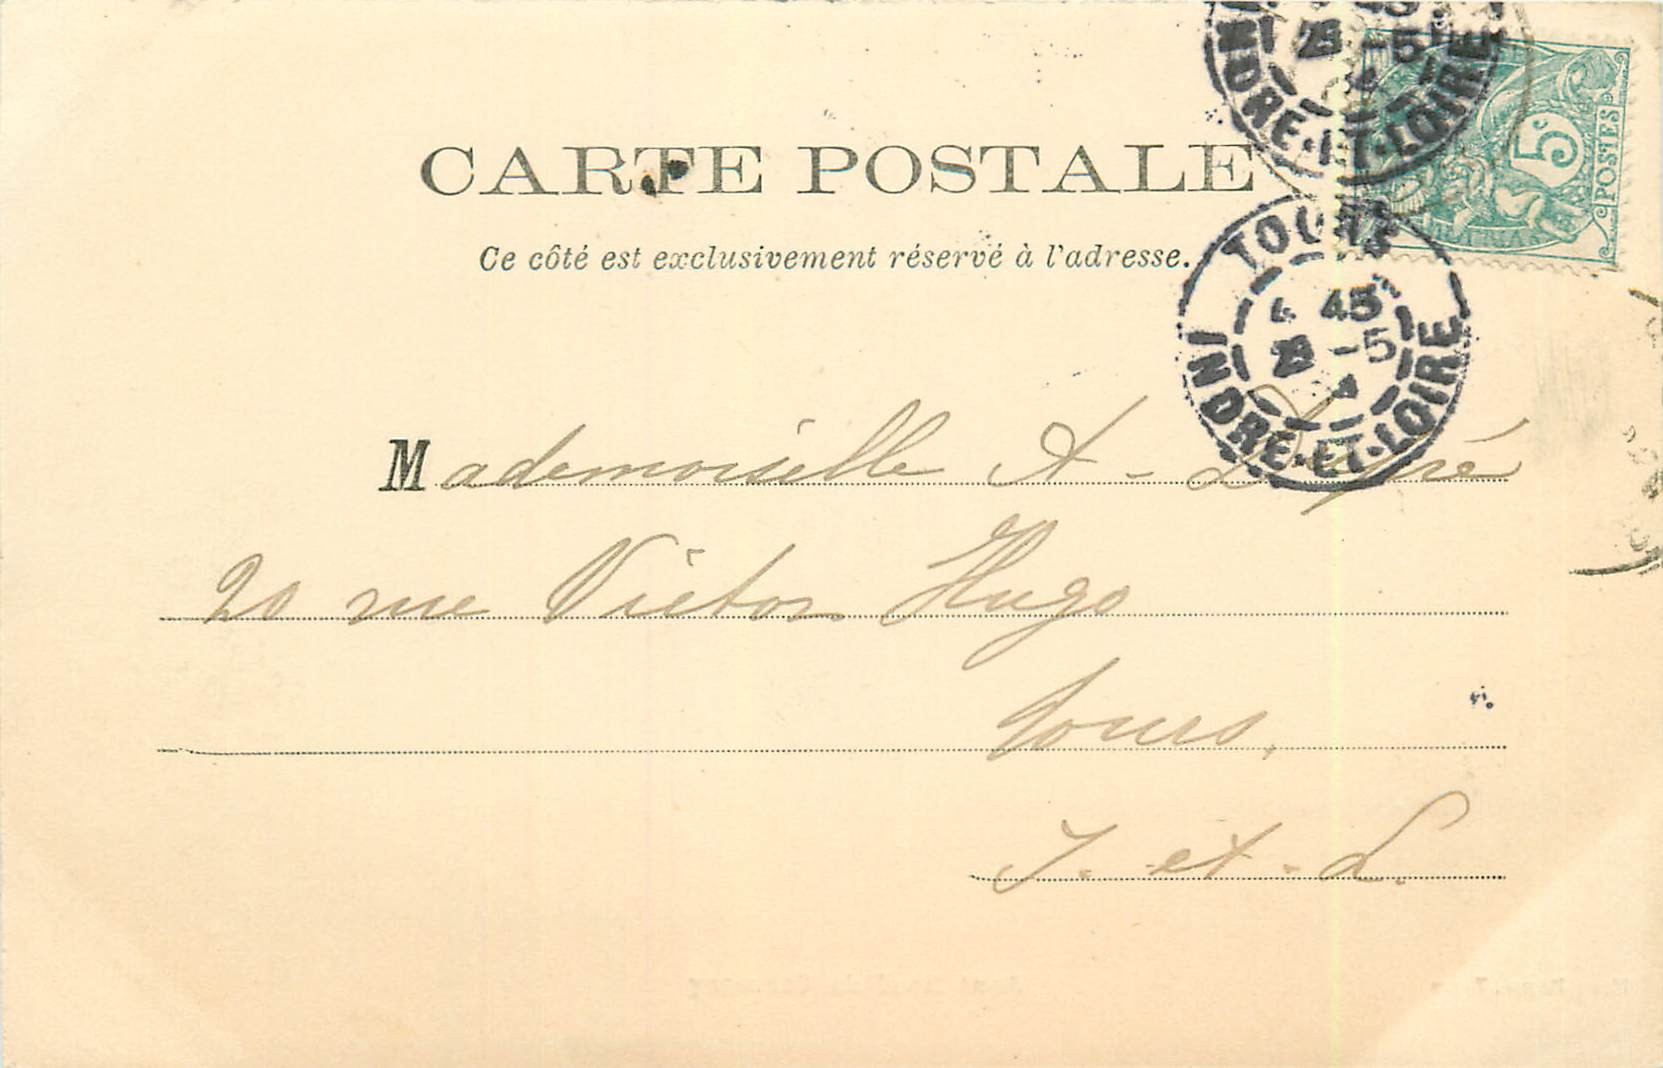 CARTE POSTALE
Ce côté est exclusivement réservé à l'adresse.
5c
POSTES
45
-5
INDRE-ET-LOIRE
TOURS
4 45
-5
INDRE-ET-LOIRE
Mademoiselle A -
20 rue Victor Hugo
Tours,
I. et. L.